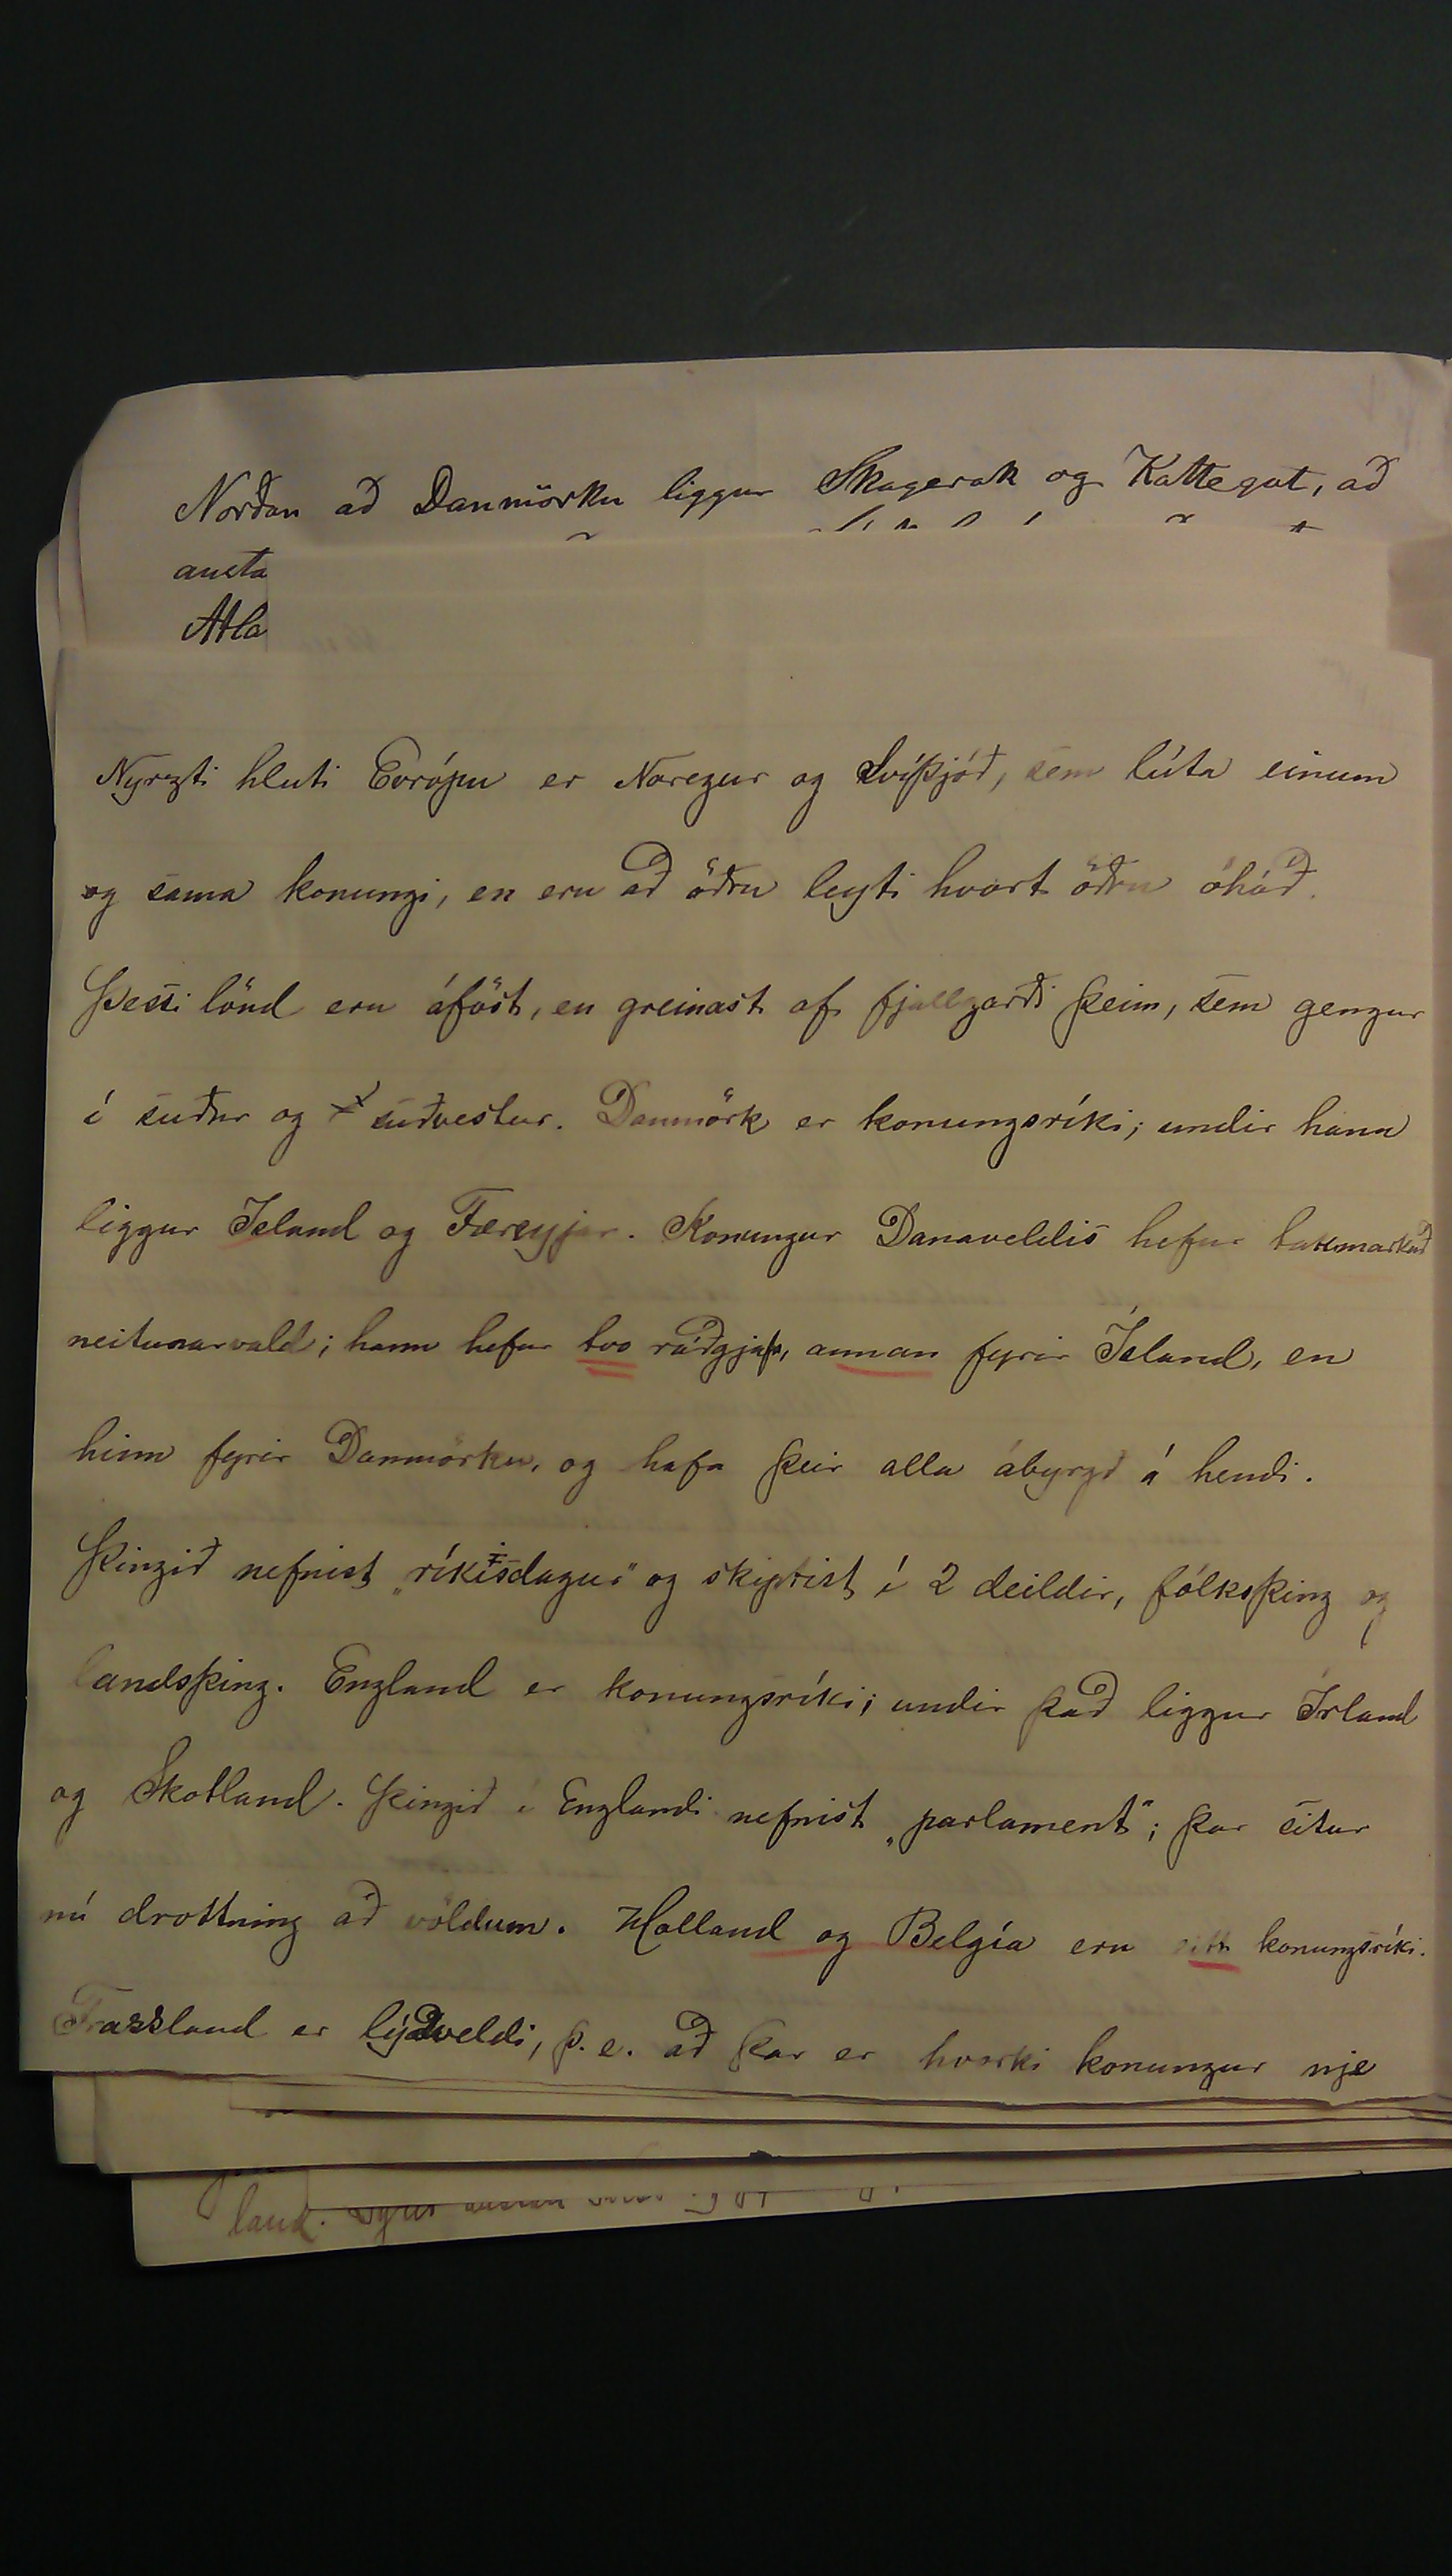 Norðan að Danmörku liggur Skagerak og Kattegat, að
austa
Atla
Nyrzti hluti Evrópu er Noregur og Svíþjóð, sem lúta einum
og sama konungi, en eru að öðru leyti hvort öðru óháð.
Þessi lönd eru áföst, en greinast af fjallgarði þeim, sem gengur
í suður og suðvestur. Danmörk er konungsríki; undir hana
liggur Island og Færeyjar. Konungur Danaveldis hefur takmarkað
neitunarvald; hann hefur tvo ráðgjafa, annan fyrir Ísland, en
hinn fyrir Danmörku, og hafa þeir alla ábyrgð á hendi.
Þingið nefnist „ríkisdagur" og skiptist í 2 deildir, fólksþing og
landsþing. England er konungsríki; undir það liggur Írland
og Skotland. Þingið í Englandi nefnist „parlament"; þar situr
nú drottning að völdum. Holland og Belgía eru eitt konungsríki.
Frakkland er lýðveldi, þ. e. að þar er hvorki konungur nje
land.